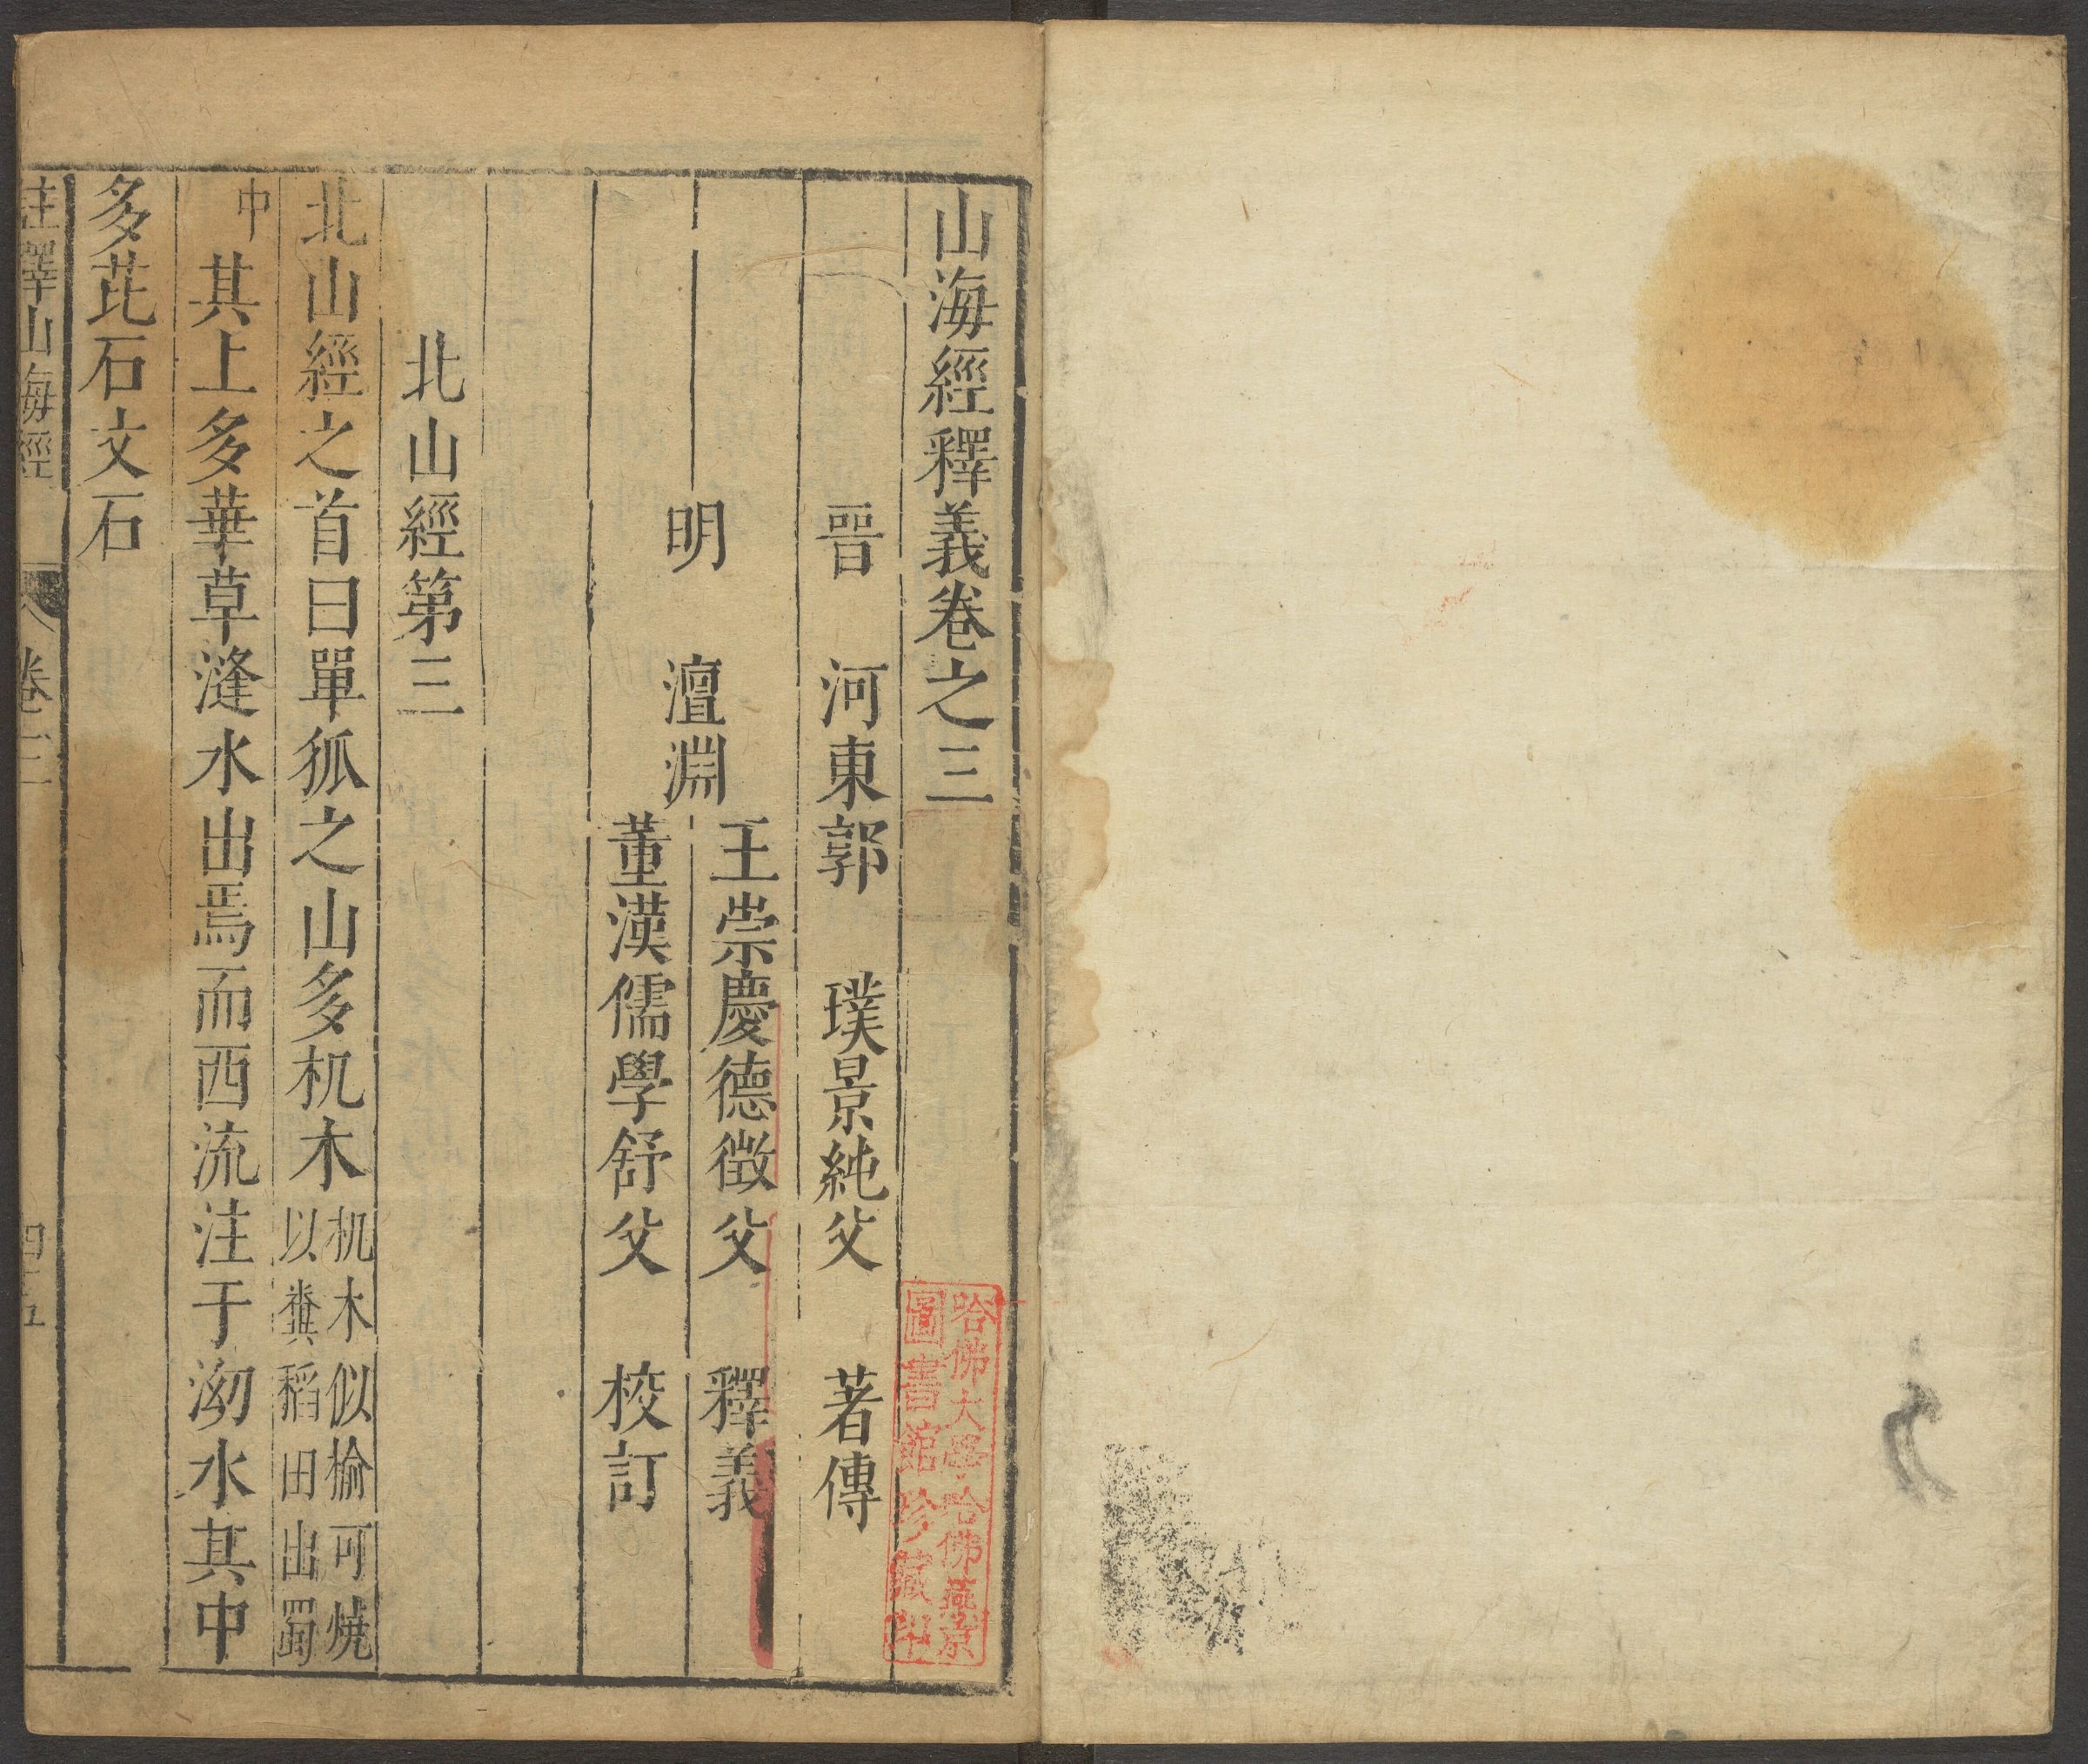 山海經釋義卷之三
晉 河東郭 璞景純父 著傳
明 澶淵
王崇慶德徵父 釋義
董漢儒學舒父 校訂
北山經第三
北山經之首曰單狐之山多机木机木似榆可燒以糞稻田出蜀
中其上多華草漨水出焉而西流注于泑水其中
多茈石文石
註釋山海經 卷三 四十五
哈佛大學哈佛燕京
圖書館珍藏印